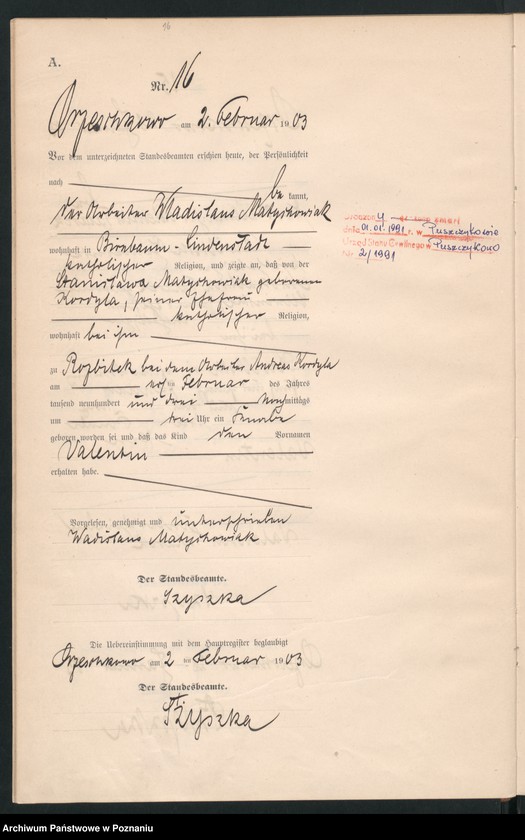 16
A.
Nr. 16
Orzeschkowo am 2. Februar 1903
Vor dem unterzeichneten Standesbeamten erschien heute, der Persönlichkeit
nach be kannt,
der Arbeiter Wladislaus Matyschowiak
wohnhaft in Birnbaum - Lindenstadt
katholischer Religion, und zeigte an, daß von der
Stanislawa Matyschowiak geborenen
Kordyla, seiner Ehefrau
katholischer Religion,
wohnhaft bei ihm
zu Rozbitek bei dem Arbeiter Andreas Kordyla
am ten Februar des Jahres
tausend neunhundert und drei Nachmittags
um drei Uhr ein Knabe
geboren worden sei und daß das Kind den Vornamen
Valentin
erhalten habe.
Vorgelesen, genehmigt und unterschrieben
Wadislaus Matyschowiak
Der Standesbeamte.
Szyszka
Die Uebereinstimmung mit dem Hauptregister beglaubigt
Orzeschkowo am 2 ten Februar 1903
Der Standesbeamte.
Szyszka
dnia 01.01.1991 r. w Puszczykowie
Urząd Stanu Cywilnego w Puszczykowo
Nr 2/1991
Archiwum Państwowe w Poznaniu